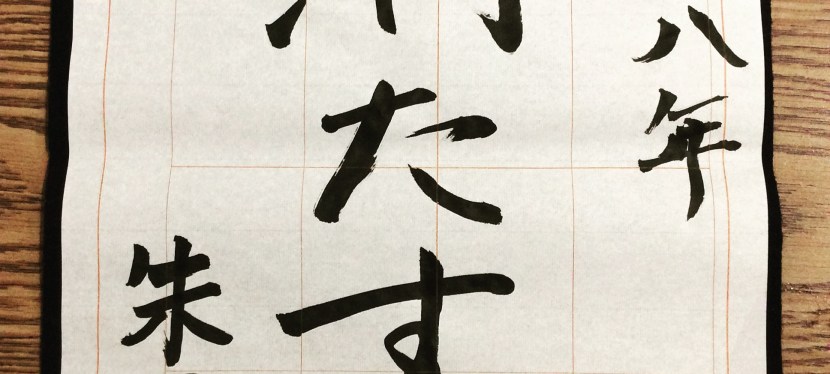 八年
たす
朱